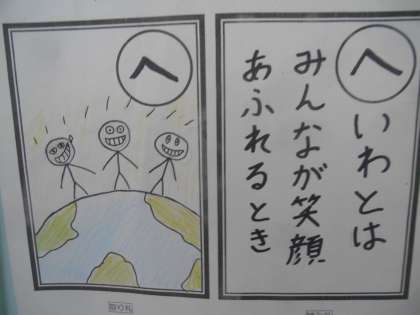 へ
へいわとは
みんなが笑顔
あふれるとき
取り札